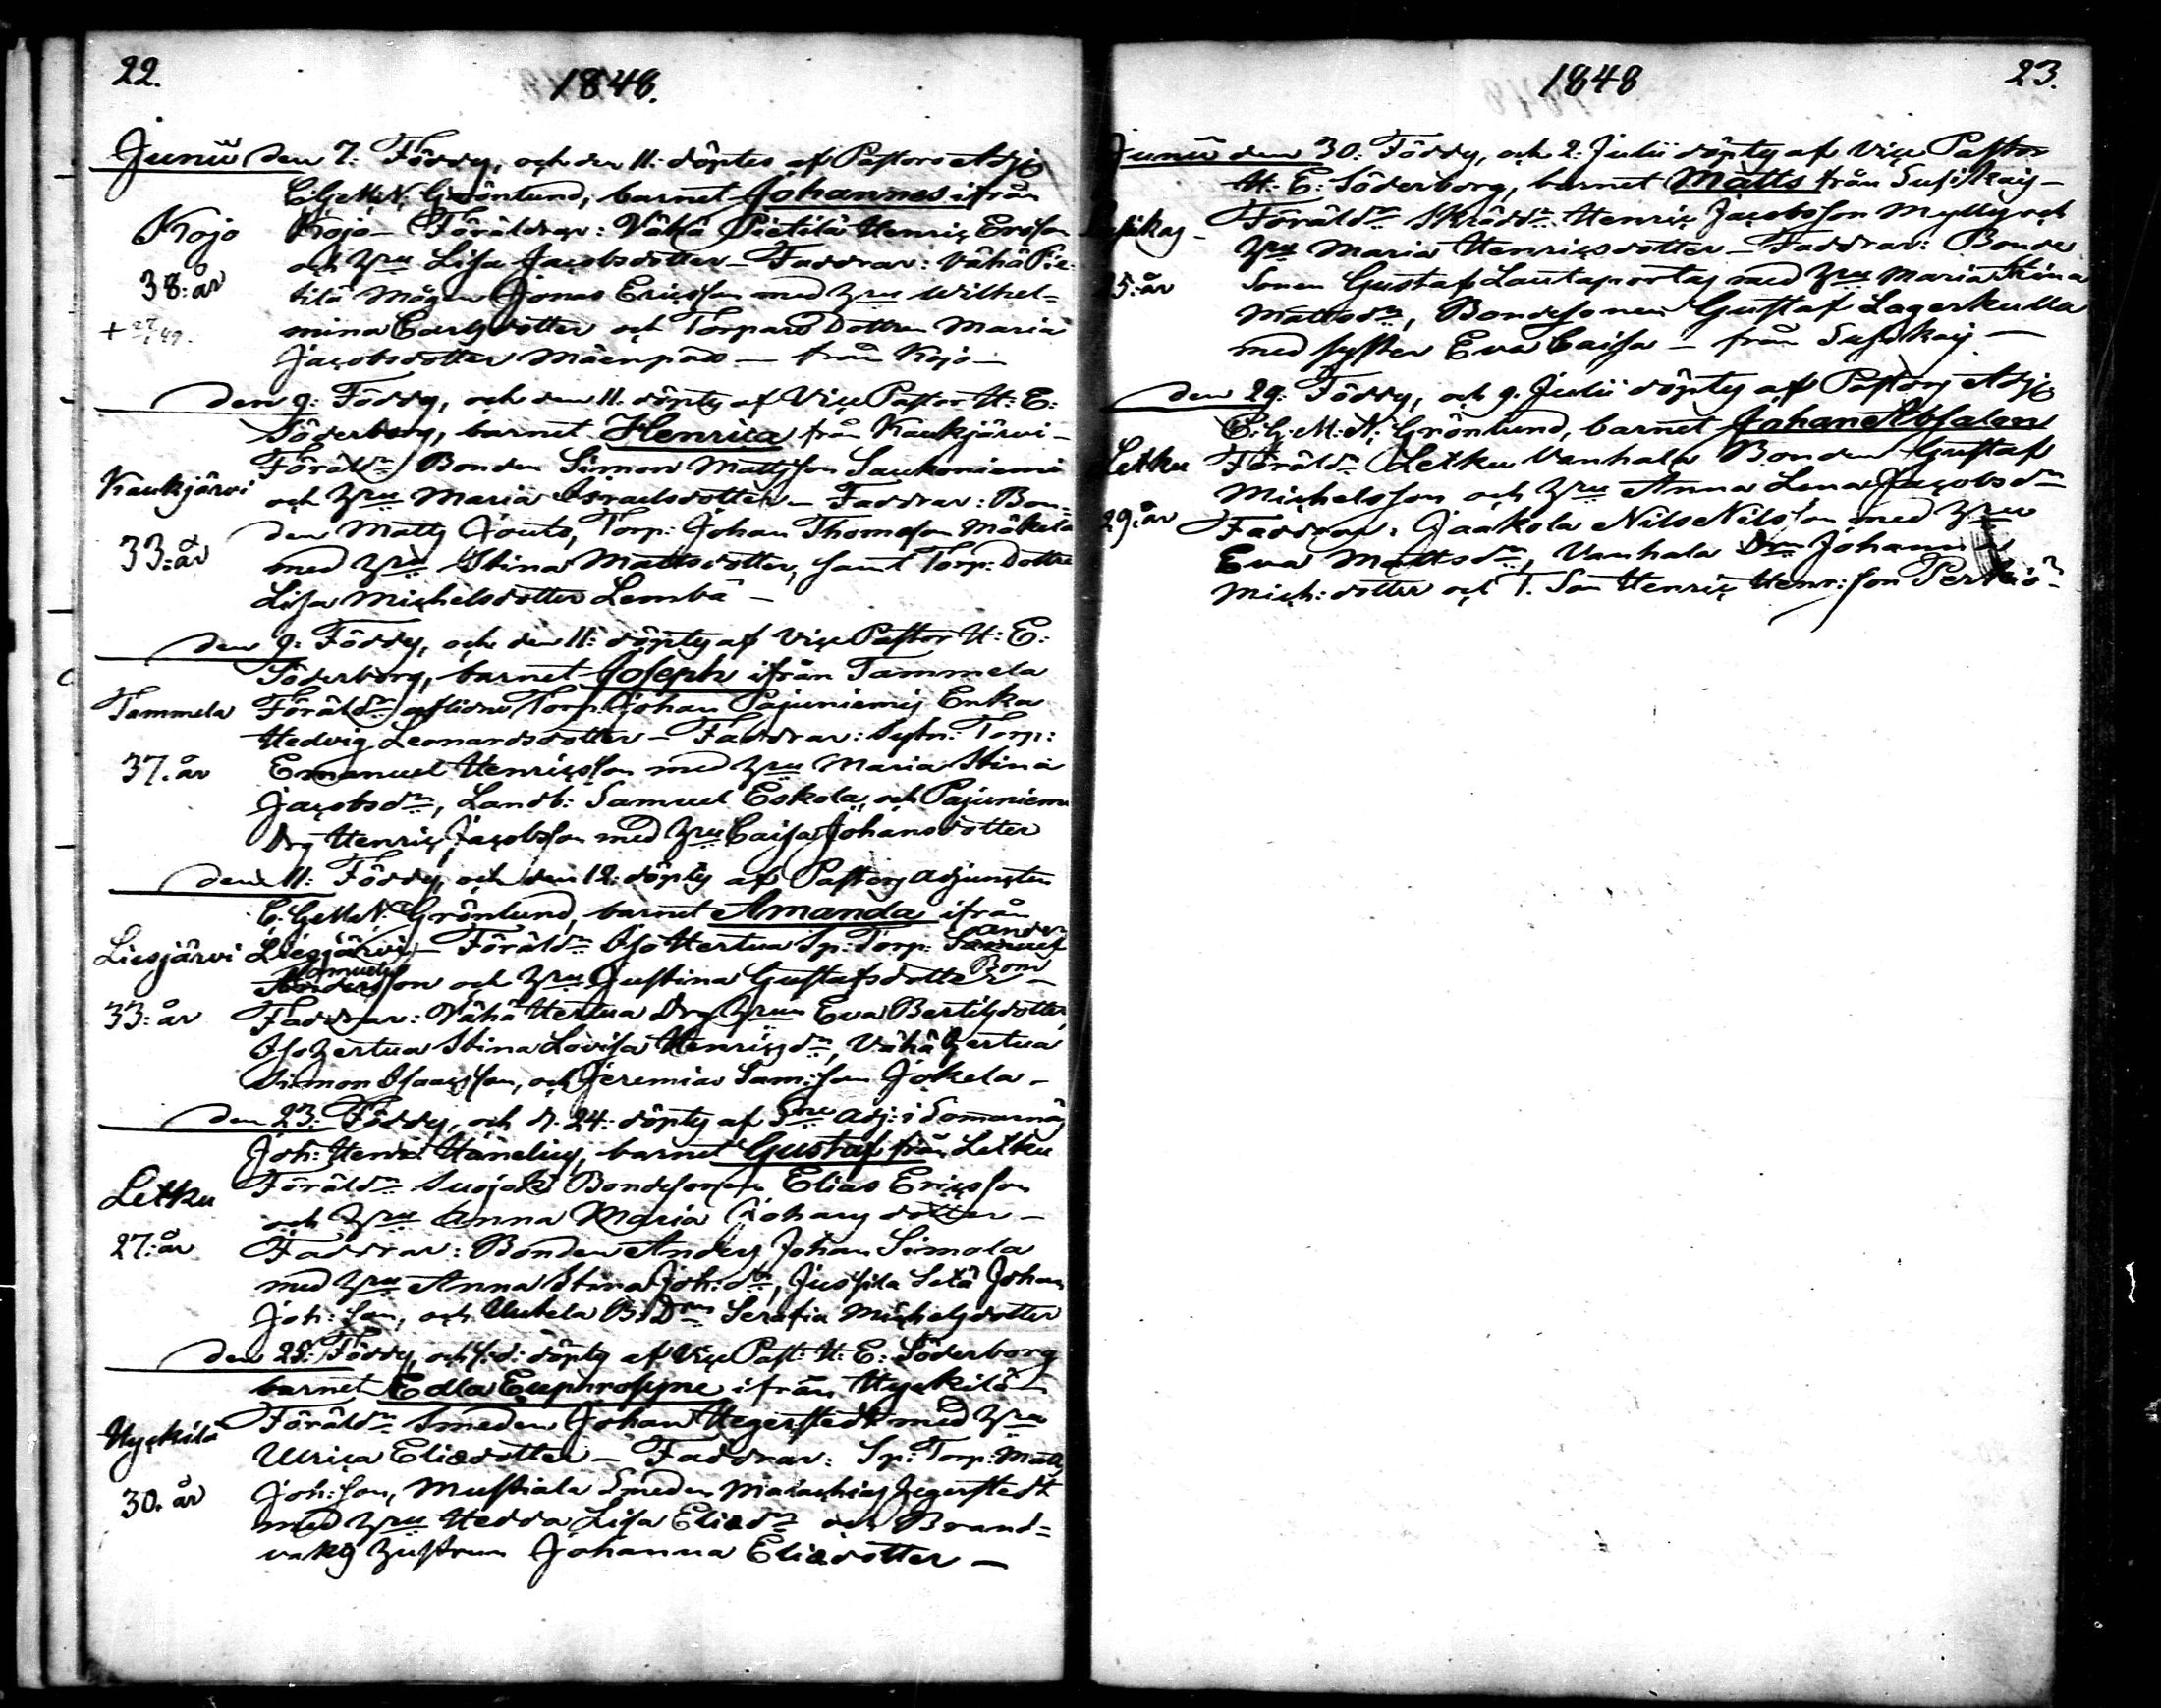 22.
1848.
Junii den 7: Föddes, och den 11: döptes af Pastors Adj:
C: G: M: N: Grönlund, barnet Johannes ifrån
Kojo
Kojo – Föräldrar: Vähä Pietilä Henric Ersson
och Hustru Lisa Jacobsdotter – Faddrar: Vähä Pie-
38: år
tilä Mågen Jonas Ericsson med Hustru Wilhel=
+ 27/ 49.
mina Carlsdotter och Torpare Dottren Maria
Jacobsdotter Mäenpää – från Kojo –
den 9: Föddes, och den 11. döptes af Vice Pastor H: E:
Söderborg, barnet Henrica från Kaukjärvi –
Föräldr: Bonden Simon Mattsson Saukoniemi
Kaukjärvi
och Hustru Maria Israelsdotter – Faddrar: Bon=
den Matts Jouts, Torp: Johan Thomasson Mäkelä
33: år
med Hustru Stina Mattsdotter, samt Torp: Dottre
Lisa Michelsdotter Lembä –
den 9: Föddes, och den 11: döptes af Vice Pastor H: E:
Söderborg, barnet Joseph ifrån Tammela
Tammela
Föräldr: aflidne Torp: Johan Pajuniemis Enka
Hedvig Leonardsdotter – Faddrar: Sytn: Torp:
37. år
Emanuel Henricsson med Hustru Maria Stina
Jacobsdr, Landb: Samuel Eskola, och Pajuniemi
Drg Henric Jacobsson med Hustru Caisa Johansdotter
den 11: Föddes, och den 12: döptes af Pastors Adjuncten
C: G: M: N: Grönlund, barnet Amanda ifrån
Liesjärvi
Liesjärvi – Föräldr: Iso Hertua Sp: Torp: Samuel
Ander
Samuels
Andersson och Hustru Justina Gustafsdotter Bom –
33: år
Faddrar: Vähä Hertua Drg Hustrun Eva Bertilsdotter,
Iso Hertua Stina Lovisa Henricsdr, Vähä Hertua
Simon Isaacsson, och Jeremias Sam:son Jokela –
den 23. Föddes, och d. 24: döptes af Sne Adj: i Somarnäs
Joh: Henr: Hänelius, barnet Gustaf från Letku
Letku
Föräldr: Suojoki Bondesonen Elias Ericsson
och Hustru Anna Maria Johans dotter –
27: år
Faddrar: Bonden Anders Johan Simola
med Hustru Anna Stina Joh: dr, Jussila Setä Johan
Joh: son, och Uutela B: Dr Serafia Michelsdotter
den 28: Föddes, och s: d: döptes af Vice Past: H: E: Söderborg
barnet Edla Euphrosyne ifrån Hyckilä
Hyckilä
Föräldr: Smeden Johan Hegerstedt med Hustru
Ulrica Eliædotter – Faddrar: Sp: Torp: Matts
30. år
Joh: son, Mustiala Smeden Malachias Hegerstedt
med Hustru Hedda Lisa Eliædr och Brand=
vakts Hustrun Johanna Eliædotter –
1848
23.
Junii den 30: Föddes, och 2: Julii döptes af Vice Pastor
H: E: Söderborg, barnet Matts från Susikas –
Susikas –
Föräldr: Skrädd: Henric Jacobsson Myllys och
Hustru Maria Henricsdotter – Faddrar: Bonde
25: år
Sonen Gustaf Lautaportas med Hustru Maria Stina
Mattsdr, Bondesonen Gustaf Lagerkulla
med syster Eva Caisa – från Susikas –
den 29: Föddes, och 9. Julii döptes af Pastors Adj:
C: G: M: N: Grönlund, barnet Johan Absalon
Letku
Föräldr: Letku Vanhala Bonden Gustaf
Michelsson och Hustru Anna Lena Jacobsdr
29: år
Faddrar: Jaakola Nils Nilsson med Hustru
Eva Mattsdr, Vanhala Drn Johanna
Mich: dotter och T. Son Henric Henr: son Perkiö –